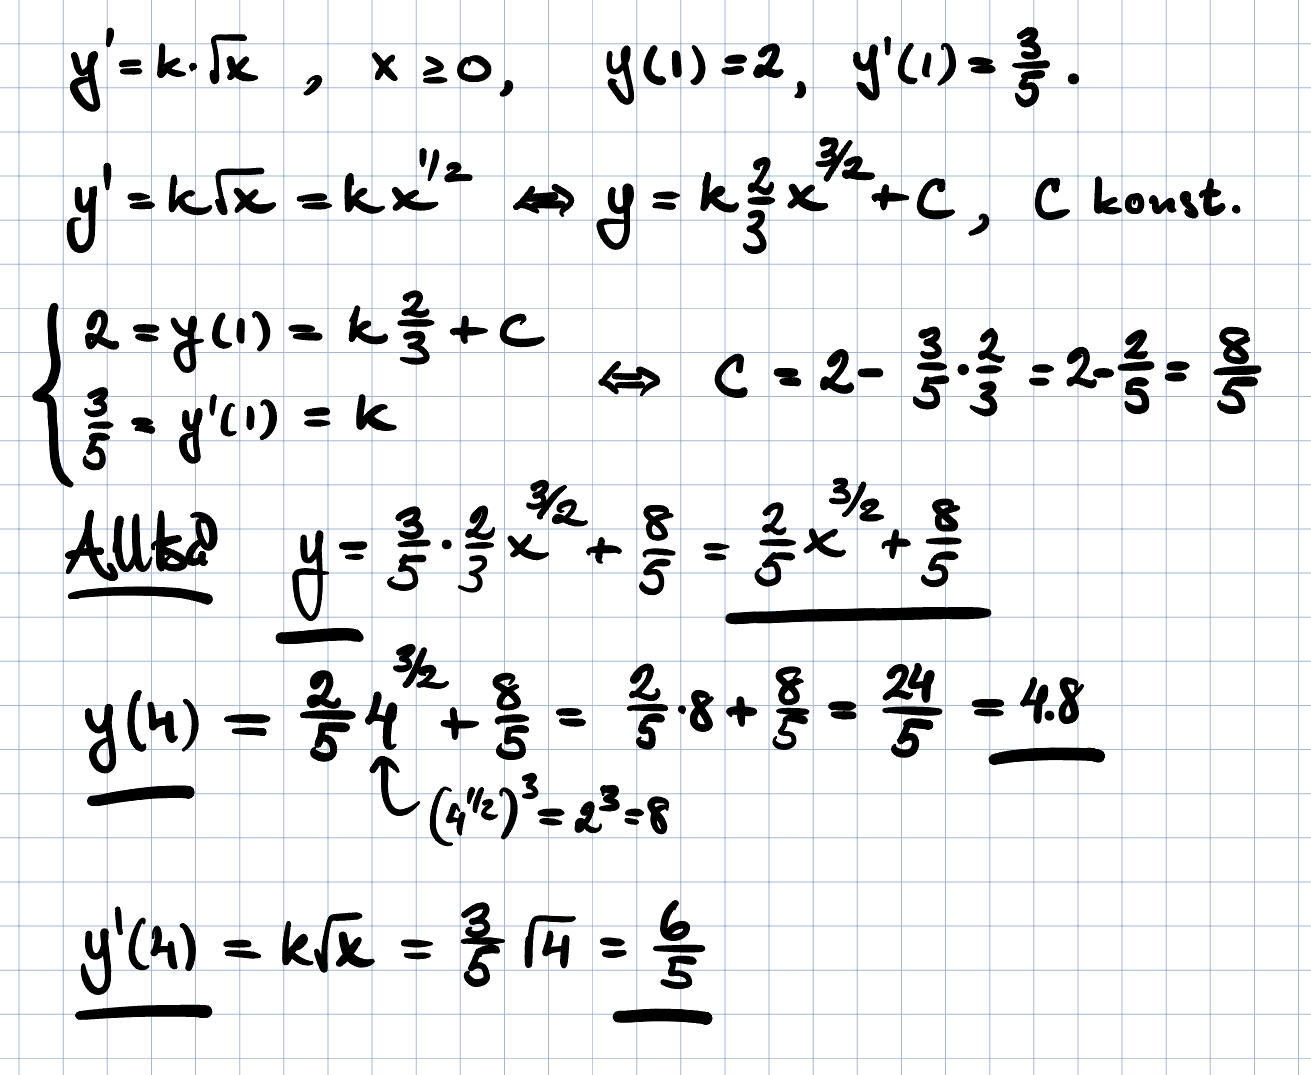 y' = k·√x , x ≥ 0, y(1) = 2, y'(1) = 3/5.
y' = k√x = k x^(1/2) ⇔ y = k 2/3 x^(3/2) + C, C konst.
{ 2 = y(1) = k 2/3 + C
3/5 = y'(1) = k ⇔ C = 2 - 3/5 · 2/3 = 2 - 2/5 = 8/5
Alltså y = 3/5 · 2/3 x^(3/2) + 8/5 = 2/5 x^(3/2) + 8/5
y(4) = 2/5 4^(3/2) + 8/5 = 2/5 · 8 + 8/5 = 24/5 = 4.8
(4^(1/2))^3 = 2^3 = 8
y'(4) = k√x = 3/5 √4 = 6/5